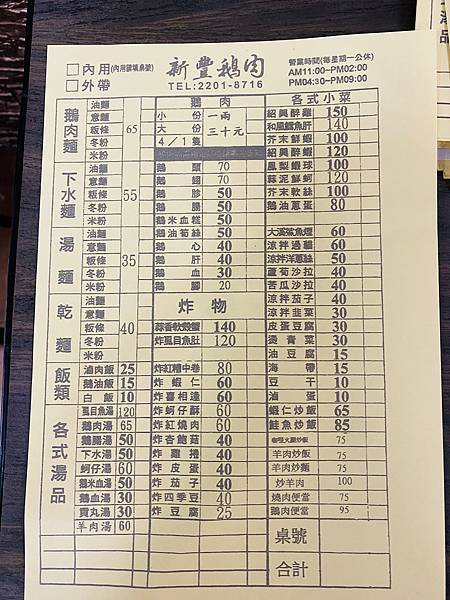 □內用(內用請填桌號)
□外帶
新豐鵝肉
TEL:2201-8716
營業時間(每星期一公休)
AM11:00~PM02:00
PM04:30~PM09:00
鵝肉麵
油麵
意麵
粄條 65
冬粉
米粉
下水麵
油麵
意麵
粄條 55
冬粉
米粉
湯麵
油麵
意麵
粄條 35
冬粉
米粉
乾麵
油麵
意麵
粄條 40
冬粉
米粉
飯類
滷肉飯 25
鵝油飯 15
白飯 10
各式湯品
虱目魚湯 120
鵝肉湯 65
鵝腸湯 50
下水湯 50
蚵仔湯 60
鵝米血湯 50
鵝血湯 30
貢丸湯 30
羊肉湯 60
鵝肉
小份 一兩
大份 三十元
4/1隻
鵝頭 70
鵝翅 70
鵝胗 50
鵝腸 50
鵝米血糕 50
鵝油筍絲 50
鵝心 40
鵝肝 40
鵝血 30
鵝腳 20
炸物
蒜香軟殼蟹 140
炸虱目魚肚 120
炸紅糟中卷 80
炸蝦仁 60
炸喜相逢 60
炸蚵仔酥 60
炸紅燒肉 60
炸杏鮑菇 40
炸雞捲 40
炸皮蛋 40
炸茄子 40
炸四季豆 40
炸豆腐 25
各式小菜
紹興醉雞 150
和風鱈魚肝 140
芥末鮮蝦 100
紹興醉蝦 120
鳳梨蝦球 100
蒜泥鮮蚵 120
芥末軟絲 100
鵝油蔥蛋 80
大溪鯊魚煙 60
涼拌過貓 60
涼拌洋蔥絲 50
蘆筍沙拉 40
苦瓜沙拉 40
涼拌茄子 40
涼拌韭菜 30
皮蛋豆腐 30
燙青菜 30
油豆腐 15
海帶 15
豆干 10
滷蛋 10
蝦仁炒飯 65
鮭魚炒飯 85
咖哩火腿炒飯 75
羊肉炒飯 75
羊肉炒麵 75
炒羊肉 100
燒肉便當 75
鵝肉便當 95
桌號
合計
品